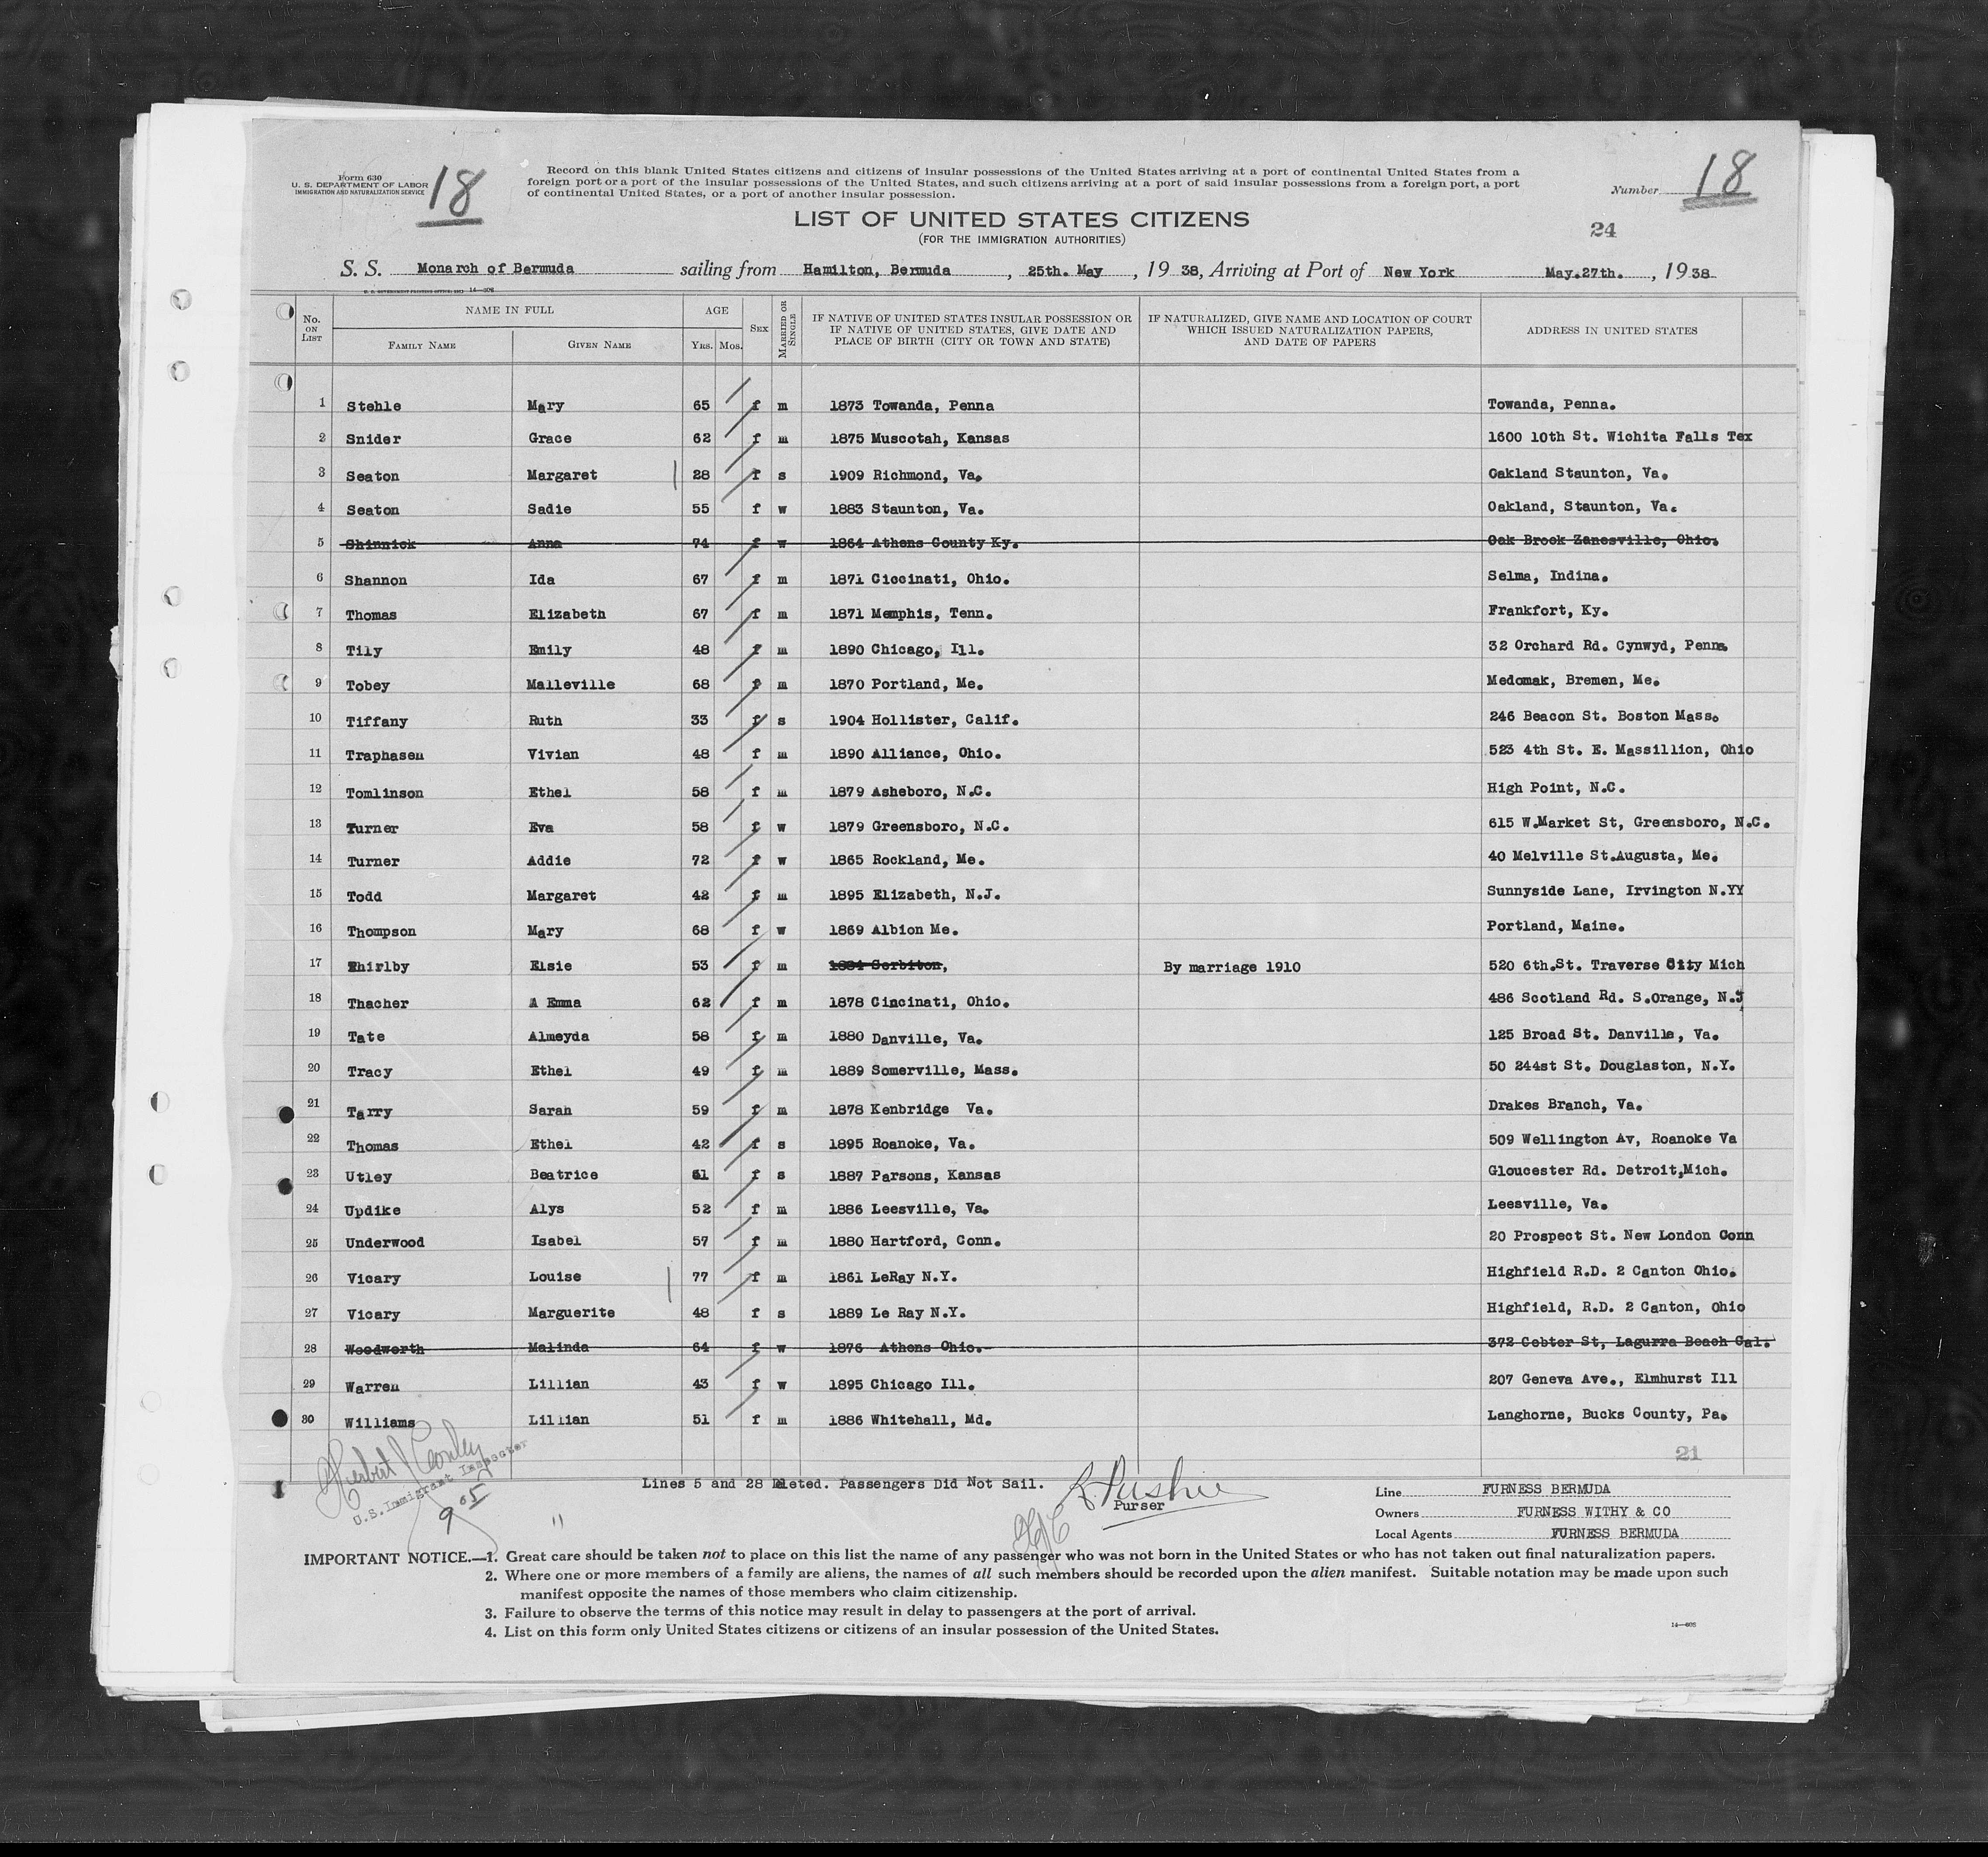 Form 630
U. S. DEPARTMENT OF LABOR
IMMIGRATION AND NATURALIZATION SERVICE
18
Record on this blank United States citizens and citizens of insular possessions of the United States arriving at a port of continental United States from a
foreign port or a port of the insular possessions of the United States, and such citizens arriving at a port of said insular possessions from a foreign port, a port
of continental United States, or a port of another insular possession.
Number 18
LIST OF UNITED STATES CITIZENS
(FOR THE IMMIGRATION AUTHORITIES)
24
S. S. Monarch of Bermuda sailing from Hamilton, Bermuda, 25th. May, 1938, Arriving at Port of New York May.27th., 1938
No. ON LIST NAME IN FULL FAMILY NAME GIVEN NAME AGE YRS. MOS. SEX MARRIED OR SINGLE IF NATIVE OF UNITED STATES INSULAR POSSESSION OR IF NATIVE OF UNITED STATES, GIVE DATE AND PLACE OF BIRTH (CITY OR TOWN AND STATE) IF NATURALIZED, GIVE NAME AND LOCATION OF COURT WHICH ISSUED NATURALIZATION PAPERS, AND DATE OF PAPERS ADDRESS IN UNITED STATES
1 Stehle Mary 65 f m 1873 Towanda, Penna Towanda, Penna.
2 Snider Grace 62 f m 1875 Muscotah, Kansas 1600 10th St. Wichita Falls Tex
3 Seaton Margaret 28 f s 1909 Richmond, Va. Oakland Staunton, Va.
4 Seaton Sadie 55 f w 1883 Staunton, Va. Oakland, Staunton, Va.
5 Shinnick Anna 74 f w 1864 Athens County Ky. Oak Brook Zanesville, Ohio.
6 Shannon Ida 67 f m 1871 Ciccinati, Ohio. Selma, Indina.
7 Thomas Elizabeth 67 f m 1871 Memphis, Tenn. Frankfort, Ky.
8 Tily Emily 48 f m 1890 Chicago, Ill. 32 Orchard Rd. Cynwyd, Penna
9 Tobey Malleville 68 f m 1870 Portland, Me. Medomak, Bremen, Me.
10 Tiffany Ruth 33 f s 1904 Hollister, Calif. 246 Beacon St. Boston Mass.
11 Traphasen Vivian 48 f m 1890 Alliance, Ohio. 523 4th St. E. Massillion, Ohio
12 Tomlinson Ethel 58 f m 1879 Asheboro, N.C. High Point, N.C.
13 Turner Eva 58 f w 1879 Greensboro, N.C. 615 W.Market St, Greensboro, N.C.
14 Turner Addie 72 f w 1865 Rockland, Me. 40 Melville St.Augusta, Me.
15 Todd Margaret 42 f m 1895 Elizabeth, N.J. Sunnyside Lane, Irvington N.YY
16 Thompson Mary 68 f w 1869 Albion Me. Portland, Maine.
17 Thirlby Elsie 53 f m 1884 Serbiton, By marriage 1910 520 6th.St. Traverse City Mich
18 Thacher A Emma 62 f m 1878 Cincinati, Ohio. 486 Scotland Rd. S.Orange, N.J
19 Tate Almeyda 58 f m 1880 Danville, Va. 125 Broad St. Danville, Va.
20 Tracy Ethel 49 f m 1889 Somerville, Mass. 50 244st St. Douglaston, N.Y.
21 Tarry Sarah 59 f m 1878 Kenbridge Va. Drakes Branch, Va.
22 Thomas Ethel 42 f s 1895 Roanoke, Va. 509 Wellington Av, Roanoke Va
23 Utley Beatrice 51 f s 1887 Parsons, Kansas Gloucester Rd. Detroit,Mich.
24 Updike Alys 52 f m 1886 Leesville, Va. Leesville, Va.
25 Underwood Isabel 57 f m 1880 Hartford, Conn. 20 Prospect St. New London Conn
26 Vicary Louise 77 f m 1861 LeRay N.Y. Highfield R.D. 2 Canton Ohio.
27 Vicary Marguerite 48 f s 1889 Le Ray N.Y. Highfield, R.D. 2 Canton, Ohio
28 Woodworth Malinda 64 f w 1876 Athens Ohio. 372 Cebter St, Lagurra Beach Cal.
29 Warren Lillian 43 f w 1895 Chicago Ill. 207 Geneva Ave., Elmhurst Ill
30 Williams Lillian 51 f m 1886 Whitehall, Md. Langhorne, Bucks County, Pa.
21
Herbert J Conley
U.S.Immigrant Inspector
9 05
Lines 5 and 28 Deleted. Passengers Did Not Sail.
Purser
Line FURNESS BERMUDA
Owners FURNESS WITHY & CO
Local Agents FURNESS BERMUDA
IMPORTANT NOTICE.—1. Great care should be taken not to place on this list the name of any passenger who was not born in the United States or who has not taken out final naturalization papers.
2. Where one or more members of a family are aliens, the names of all such members should be recorded upon the alien manifest. Suitable notation may be made upon such
manifest opposite the names of those members who claim citizenship.
3. Failure to observe the terms of this notice may result in delay to passengers at the port of arrival.
4. List on this form only United States citizens or citizens of an insular possession of the United States.
14—608